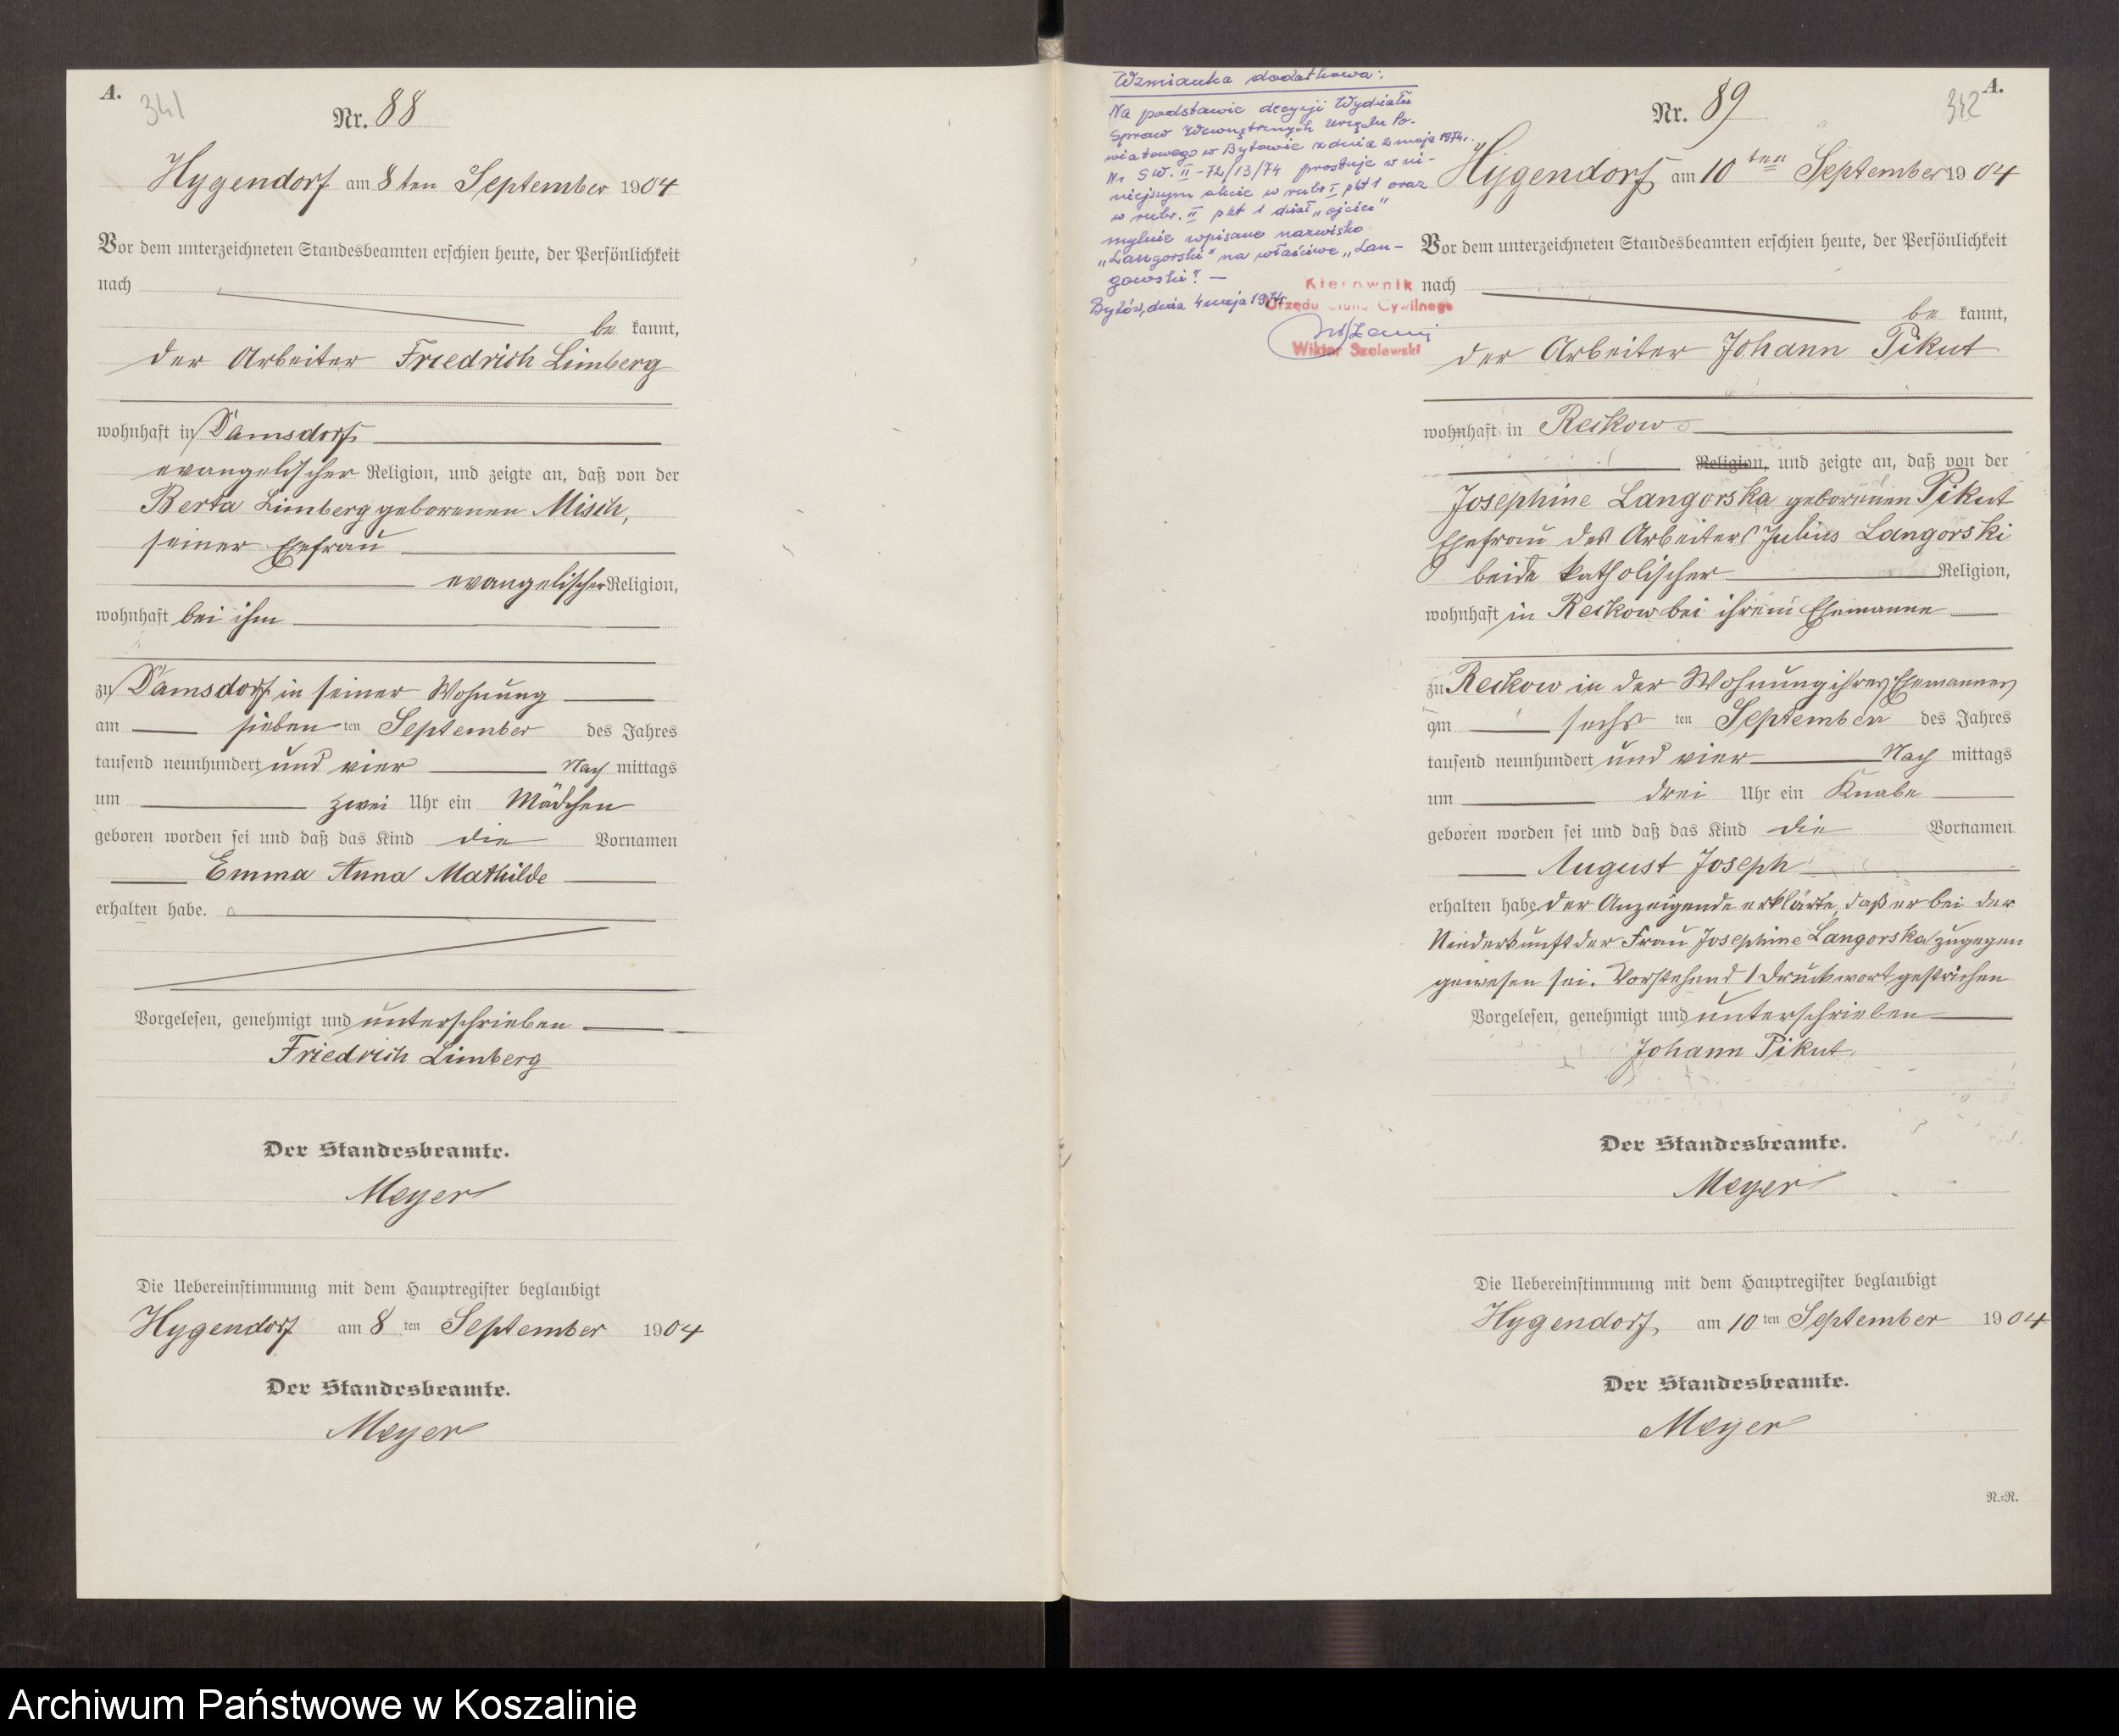 A.
341
Nr. 88
Hygendorf am 8ten September 1904
Vor dem unterzeichneten Standesbeamten erschien heute, der Persönlichkeit
nach
be kannt,
der Arbeiter Friedrich Limberg
wohnhaft in Damsdorf
evangelischer Religion, und zeigte an, daß von der
Berta Limberg geborenen Misch,
seiner Ehefrau
evangelischer Religion,
wohnhaft bei ihm
zu Damsdorf in seiner Wohnung
am sieben ten September des Jahres
tausend neunhundert und vier Nach mittags
um zwei Uhr ein Mädchen
geboren worden sei und daß das Kind die Vornamen
Emma Anna Mathilde
erhalten habe.
Vorgelesen, genehmigt und unterschrieben
Friedrich Limberg
Der Standesbeamte.
Meyer
Die Uebereinstimmung mit dem Hauptregister beglaubigt
Hygendorf am 8 ten September 1904
Der Standesbeamte.
Meyer
Wzmianka dodatkowa:
Na podstawie decyzji Wydziału
Spraw Wewnętrznych Urzędu Po-
wiatowego w Bytowie z dnia 2 maja 1974r.
Nr SW. II-72/13/74 prostuje w ni-
niejszym akcie w rubr. I pkt 1 oraz
w rubr. II pkt 1 dział „ojciec"
mylnie wpisane nazwisko
„Langorski" na właściwe „Lan-
gowski". —
Bytów, dnia 4 maja 1974r.
Kierownik
Urzędu Stanu Cywilnego
Wiktor Szalewski
A.
342
Nr. 89
Hygendorf am 10 ten September 1904
Vor dem unterzeichneten Standesbeamten erschien heute, der Persönlichkeit
nach
be kannt,
der Arbeiter Johann Pikut
wohnhaft in Reckow
Religion, und zeigte an, daß von der
Josephine Langorska geborenen Pikut
Ehefrau des Arbeiters Julius Langorski
beide katholischer Religion,
wohnhaft in Reckow bei ihrem Ehemanne
zu Reckow in der Wohnung ihres Ehemannes
am sechs ten September des Jahres
tausend neunhundert und vier Nach mittags
um drei Uhr ein Knabe
geboren worden sei und daß das Kind die Vornamen
August Joseph
erhalten habe der Anzeigende erklärte, daß er bei der
Niederkunft der Frau Josephine Langorska zugegen
gewesen sei. Vorstehend 1 Druckwort gestrichen
Vorgelesen, genehmigt und unterschrieben
Johann Pikut
Der Standesbeamte.
Meyer
Die Uebereinstimmung mit dem Hauptregister beglaubigt
Hygendorf, am 10 ten September 1904
Der Standesbeamte.
Meyer
N.=R.
Archiwum Państwowe w Koszalinie